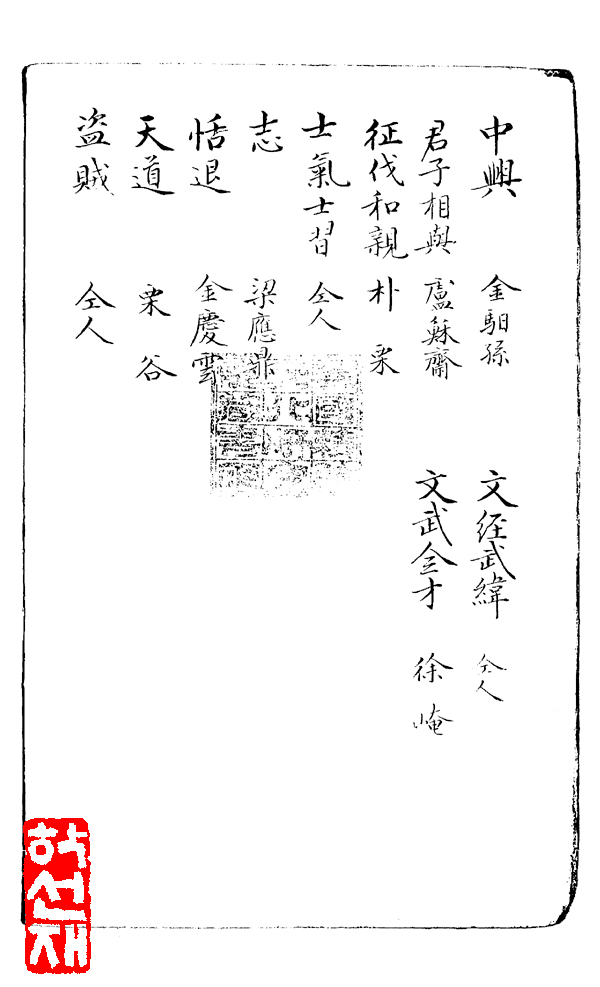 中興 金馹孫
君子相與 盧穌齋
征伐和親 朴栗
士氣士習 仝人
志 梁應鼎
恬退 金慶雲
天道 栗谷
盜賊 仝人
文経武緯 仝人
文武全才 徐崦
학선재